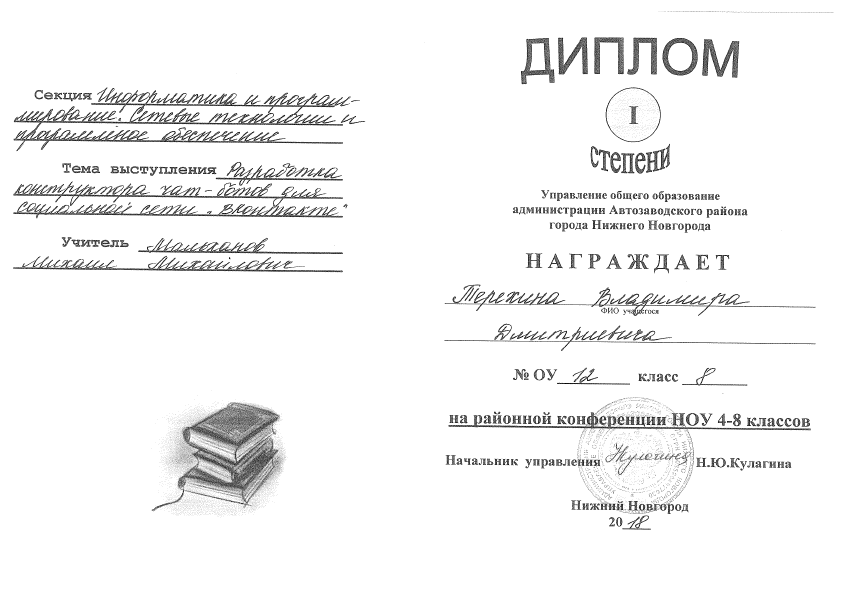 Секция Информатика и програм-
мирование. Сетевые технологии и
програмное обеспечение
Тема выступления Разработка
конструктора чат-ботов для
социальной сети „Вконтакте"
Учитель Малыханов
Михаил Михайлович
ДИПЛОМ
I
степени
Управление общего образование
администрации Автозаводского района
города Нижнего Новгорода
НАГРАЖДАЕТ
Терехина Владимира
ФИО учащегося
Дмитриевича
№ ОУ 12 класс 8
на районной конференции НОУ 4-8 классов
Начальник управления Н.Ю.Кулагина
Нижний Новгород
2018